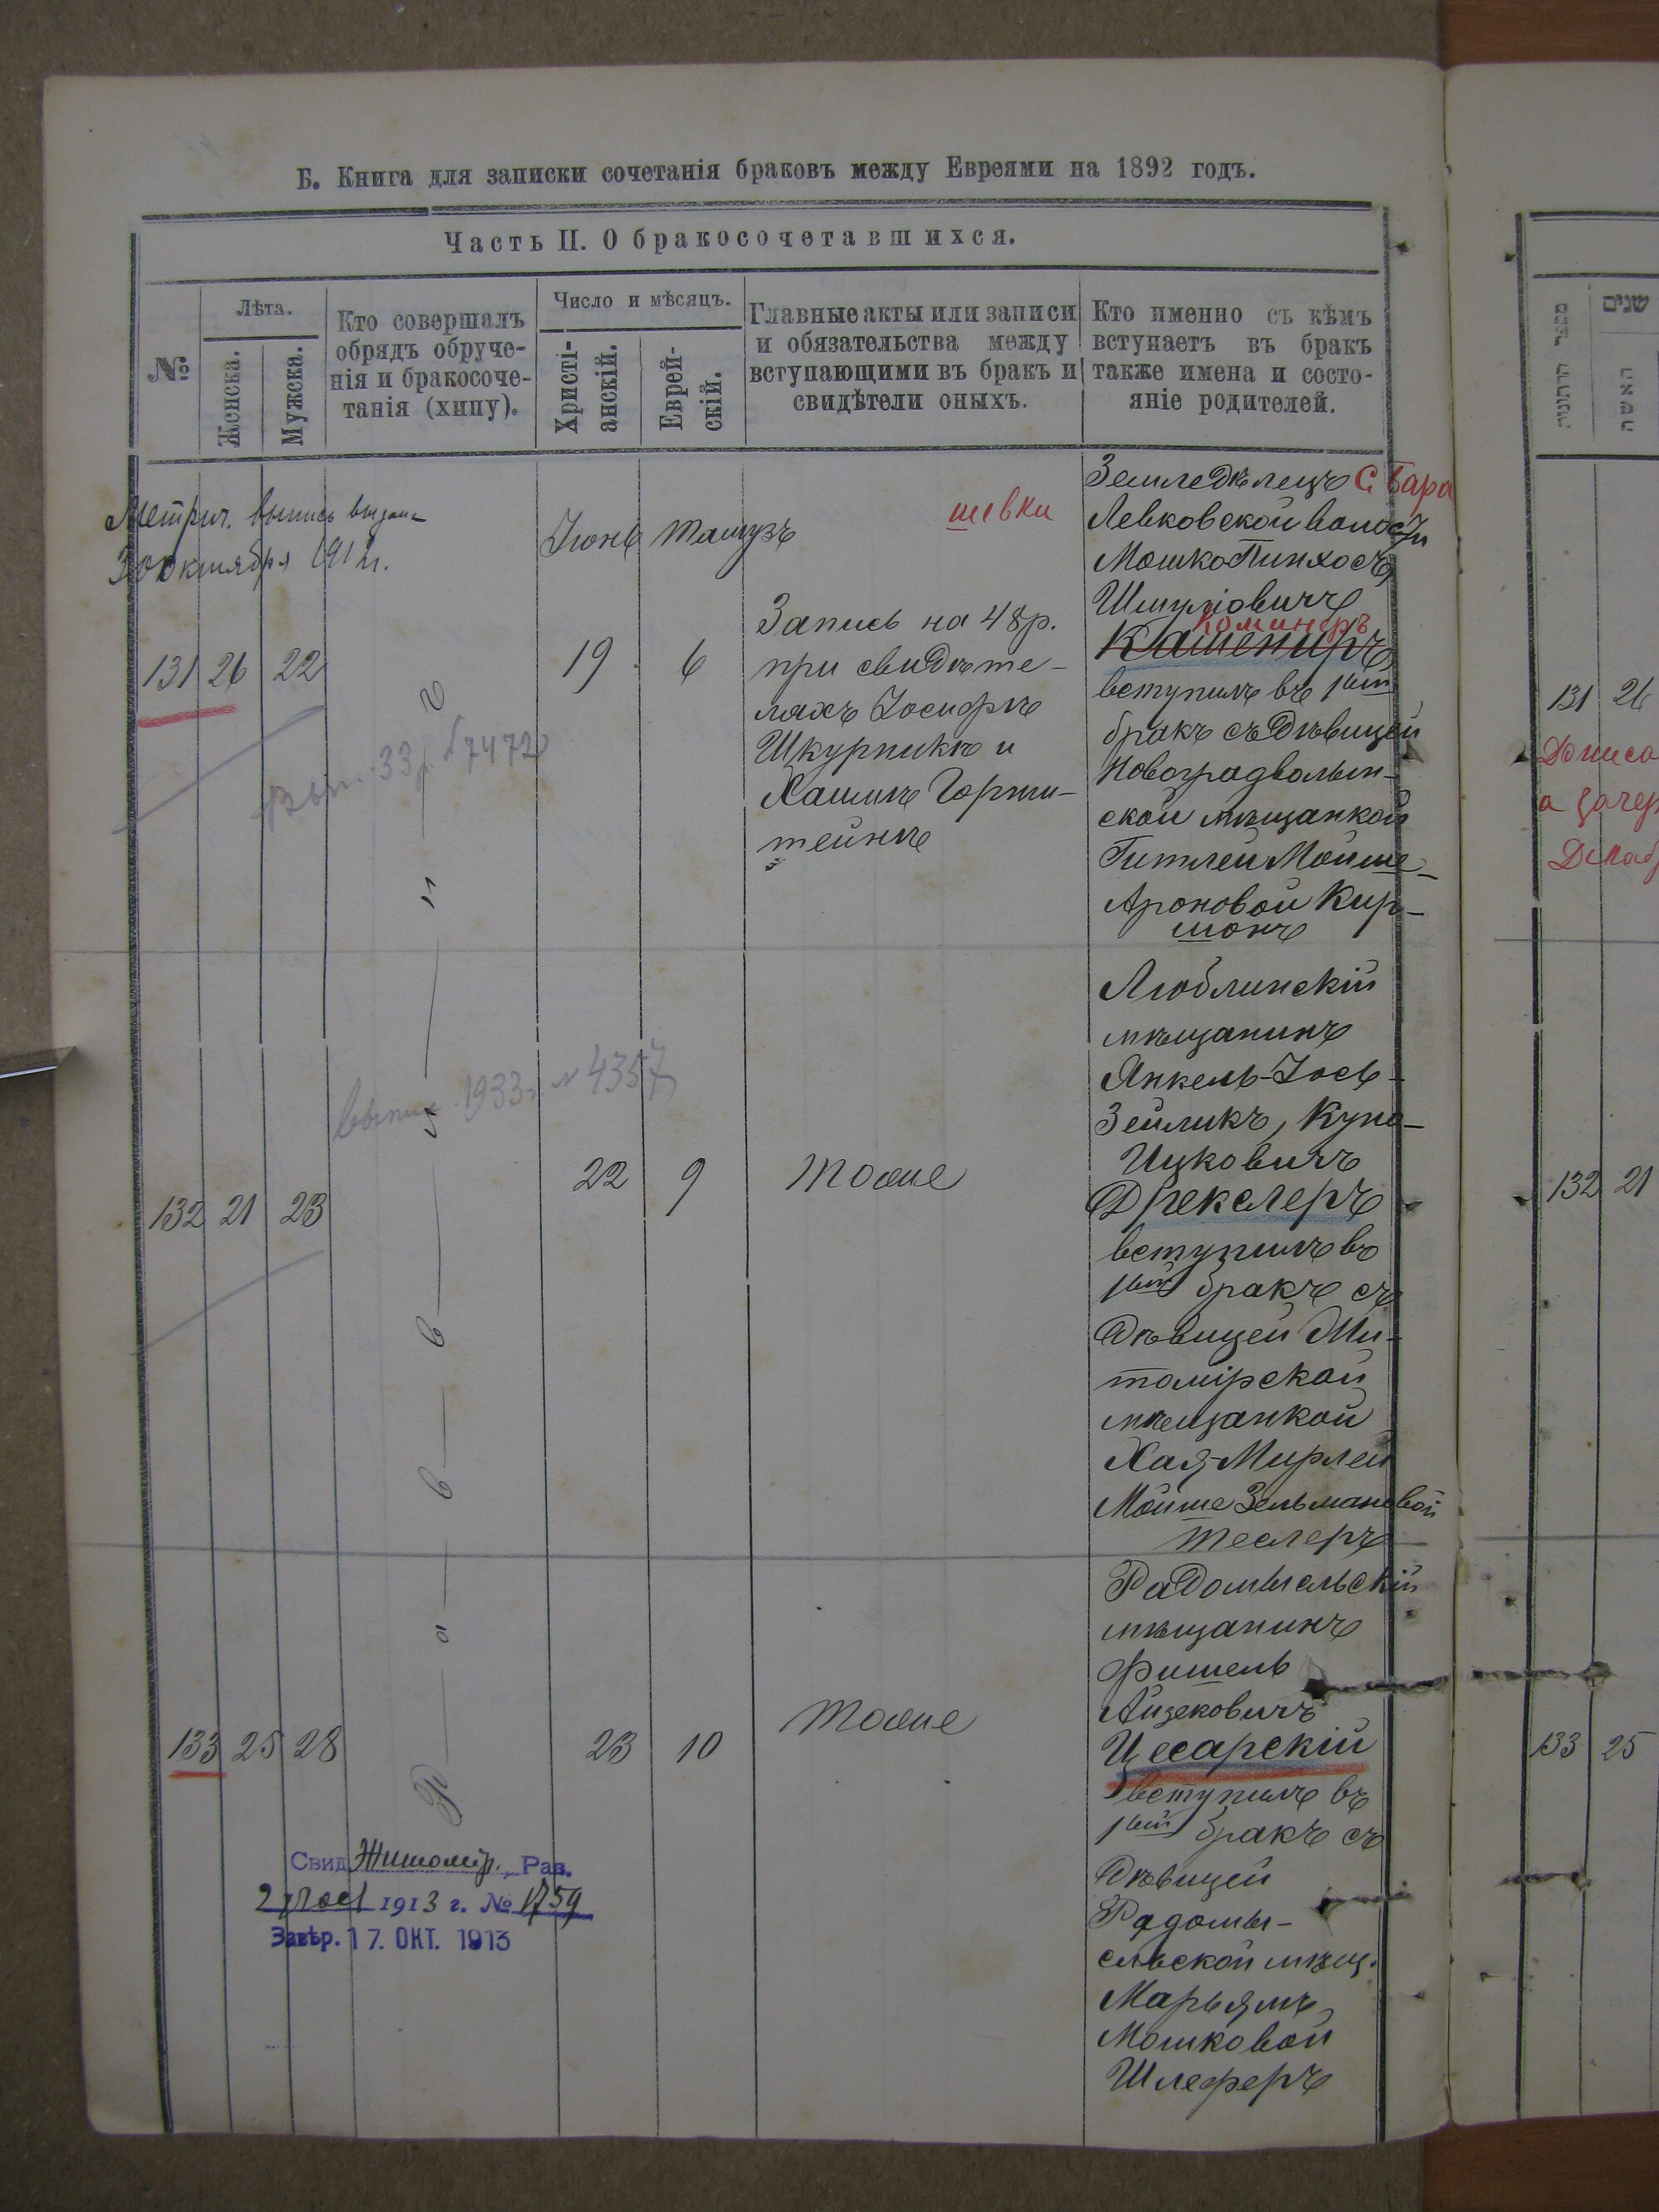 Б. Книга для записки сочетанія браковъ между Евреями на 1892 годъ.
Часть II. О бракосочетавшихся.
№
Лѣта.
Женска.
Мужска.
Кто совершалъ
обрядъ обруче-
нія и бракосоче-
танія (хипу).
Число и мѣсяцъ.
Христі-
анскій.
Еврей-
скій.
Главные акты или записи
и обязательства между
вступающими въ бракъ и
свидѣтели оныхъ.
Кто именно съ кѣмъ
вступаетъ въ бракъ
также имена и состо-
яніе родителей.
Метрич. выпись выдан
30 октября 1912 г.
Іюнь Тамузъ
131 26 22
19 6
Запись на 48 р.
при свидѣте-
ляхъ Іосифѣ
Шкурникѣ и
Хаимѣ Горшт-
тейнѣ
Земледѣлецъ С. Бара
шевки
Левковской волости
Мошко Пинхосъ
Шмуліовичъ
Коминеръ
Кашениръ
вступилъ въ 1ый
бракъ съ дѣвицей
Новоградволын-
ской мѣщанкой
Гитлей Мойше-
Ароновой Кир-
шонъ
33 г. № 7472
Р а в в и н ъ
132 21 23
1933 г. № 4357
22 9
Тоже
Люблинскій
мѣщанинъ
Янкель-Іось-
Зейликъ, Куна-
Ицковичъ
Дрекслеръ
вступилъ въ
1ый бракъ съ
дѣвицей Жи-
томірской
мѣщанкой
Хая-Мирлей
Мойше Зельмановой
Теслеръ
133 25 28
23 10
Тоже
Радомысльскій
мѣщанинъ
Фишель
Айзековичъ
Цесарскій
вступилъ въ
1ый бракъ съ
дѣвицей
Радомы-
сльской мѣщ.
Марьямъ
Мошковой
Шлеферъ
Свид. Житомір. Рав.
1913 г. № 1759
Завѣр. 17. ОКТ. 1913
מספר החתונות
שנים
האשה
131 26
132 21
133 25